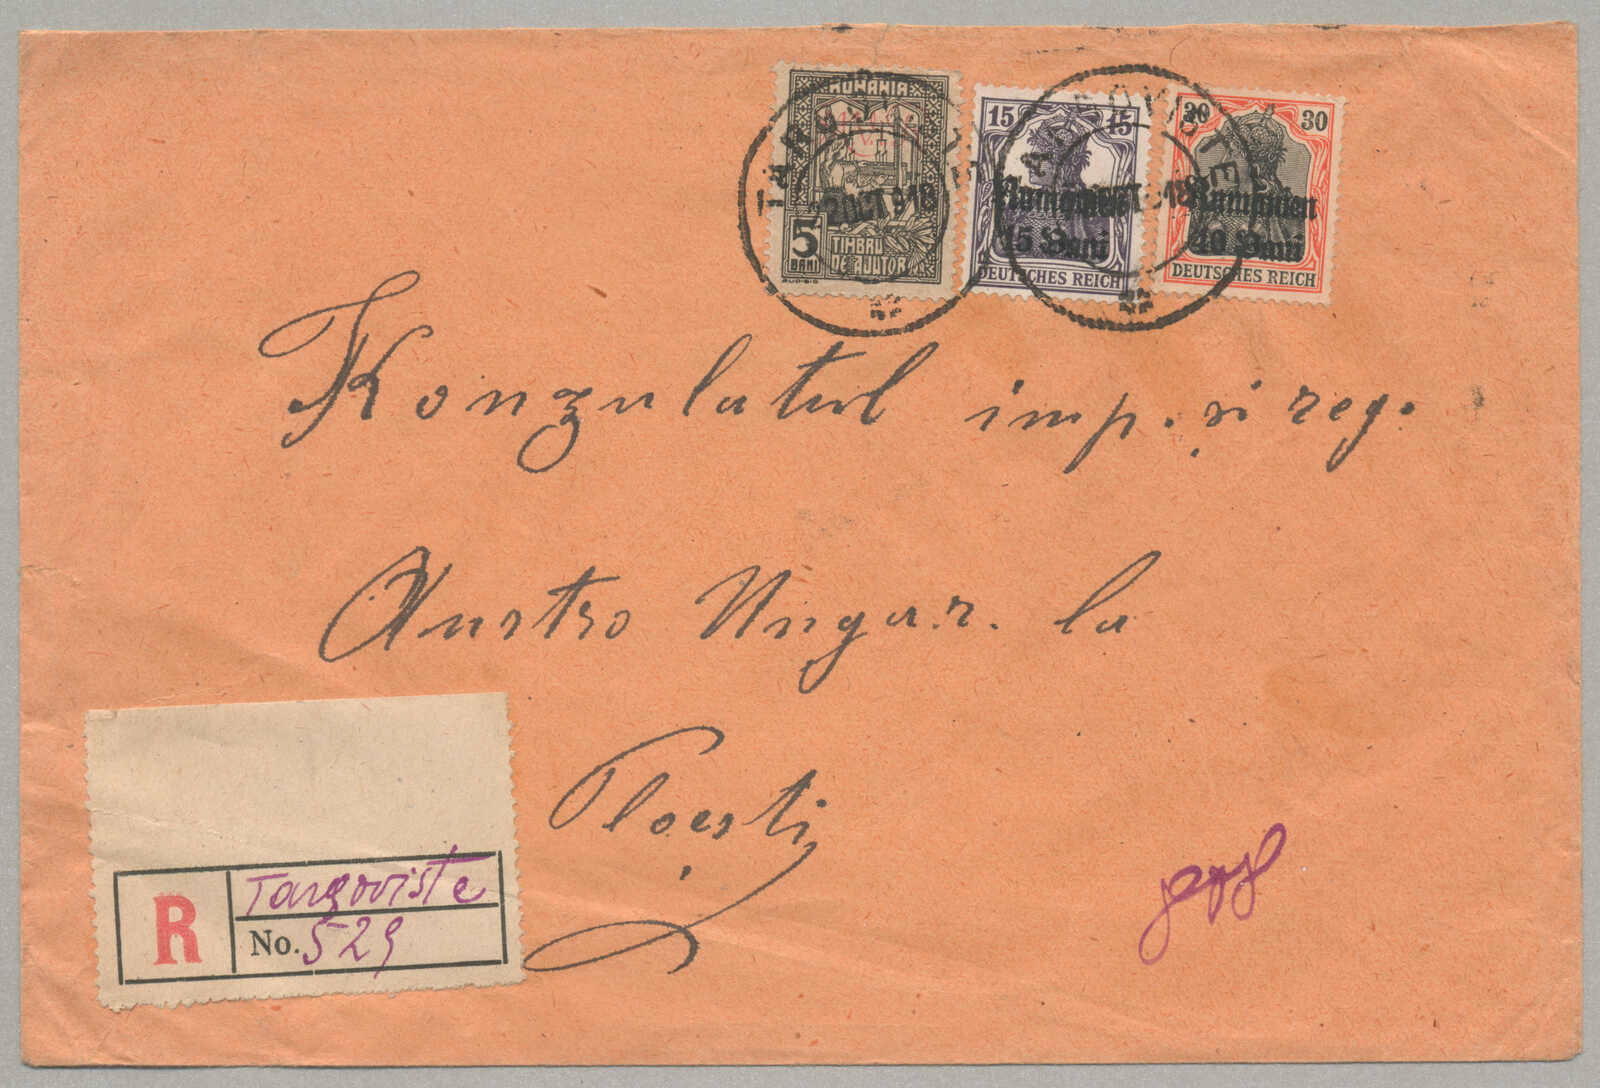 ROMANIA
5
BANI
TIMBRU
DE AJUTOR
15 15
Rumänien
15 Bani
DEUTSCHES REICH
30 30
Rumänien
40 Bani
DEUTSCHES REICH
TARGOVISTE
OCT 918
TARGOVISTE
918
Konzulatul imp. și reg.
Austro Ungar. la
Ploești
R
Targoviste
No. 529